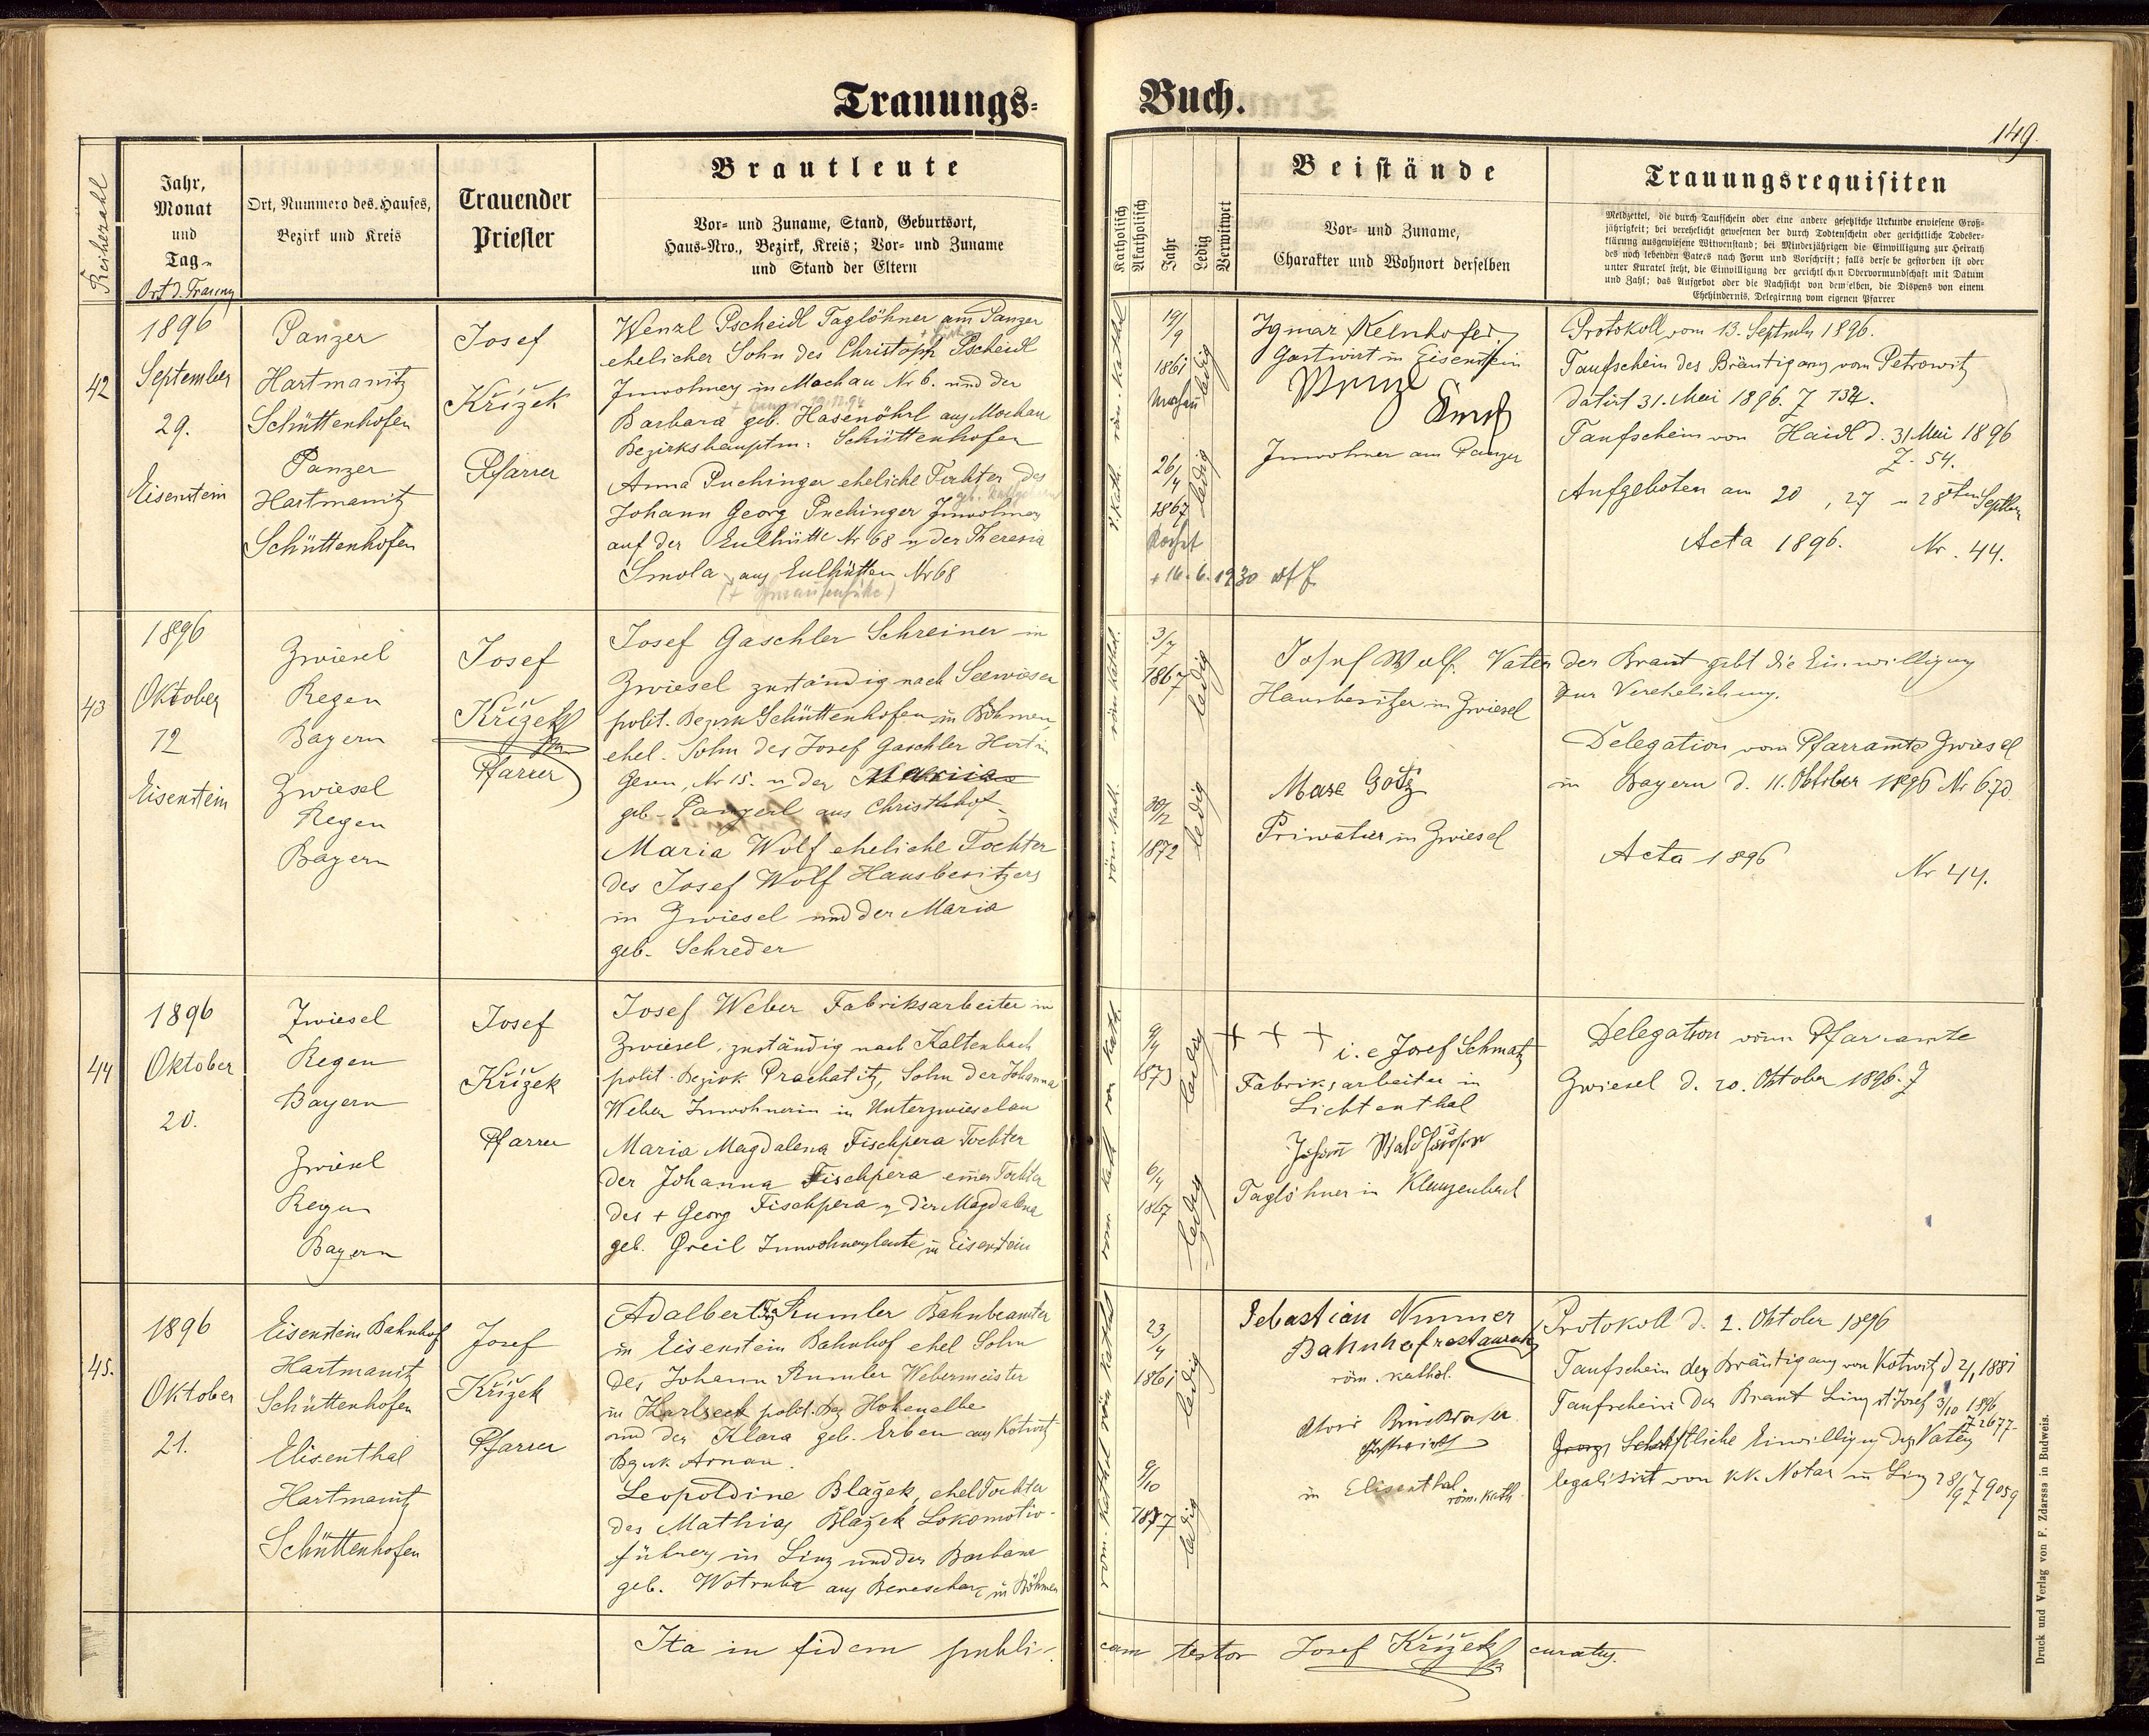 Trauungs-
Buch.
149.
Reihezahl
Jahr,
Monat
und
Tag
Ort d. Trauung
Ort, Nummero des Hauses,
Bezirk und Kreis
Trauender
Priester
Brautleute
Vor- und Zuname, Stand, Geburtsort,
Haus-Nro., Bezirk, Kreis; Vor- und Zuname
und Stand der Eltern
Katholisch
Akatholisch
Jahr
Ledig
Verwitwet
Beistände
Vor- und Zuname,
Charakter und Wohnort derselben
Trauungsrequisiten
Meldzettel, die durch Taufschein oder eine andere gesetzliche Urkunde erwiesene Groß-
jährigkeit; bei verehelicht gewesenen der durch Todtenschein oder gerichtliche Todeser-
klärung ausgewiesene Witwenstand; bei Minderjährigen die Einwilligung zur Heirath
des noch lebenden Vaters nach Form und Vorschrift; falls derselbe gestorben ist oder
unter Kuratel steht, die Einwilligung der gerichtlichen Obervormundschaft mit Datum
und Zahl; das Aufgebot oder die Nachsicht von demselben, die Dispens von einem
Ehehindernis, Delegirung vom eigenen Pfarrer
42
1896
September
29.
Eisenstein
Panzer
Hartmanitz
Schüttenhofen
Panzer
Hartmanitz
Schüttenhofen
Josef
Křížek
Pfarrer
Wenzl Pscheidl Taglöhner am Panzer
ehelicher Sohn des Christoph Pscheidl
Inwohners in Mochau Nr 6. und der
Barbara geb. Hasenöhrl aus Mochau
Bezirkshauptm: Schüttenhofen
Anna Puchinger eheliche Tochter des
Johann Georg Puchinger Inwohners
auf der Eulhütte Nr 68 u der Theresia
Smola aus Eulhütten Nr 68
r. kath. röm. kathol
19/9
1861
ledig
26/4
1867
ledig
+ 16. 6. 1930
Ignaz Kelnhofer
Gastwirt in Eisenstein
Wenzl
Inwohner am Panzer
Protokoll vom 13. September 1896.
Taufschein des Bräutigams vom Petrowitz
datirt 31. Mai 1896. Z 134.
Taufschein von Haidl d. 31 Mai 1896
Z. 54.
Aufgeboten am 20, 27 u 28ten Septber
Acta 1896. Nr. 44.
43
1896
Oktober
12
Eisenstein
Zwiesel
Regen
Bayern
Zwiesel
Regen
Bayern
Josef
Křížek
Pfarrer
Josef Gaschler Schreiner in
Zwiesel zuständig nach Seewiesen
polit. Bezirk Schüttenhofen in Böhmen,
ehel. Sohn des Josef Gaschler Hirt in
Gerun, Nr 15. u der Maria
geb. Panzerl aus Christlhof
Maria Wolf eheliche Tochter
des Josef Wolf Hausbesitzers
in Zwiesel und der Maria
geb. Schreder
röm kath. röm kathol.
3/7
1867
ledig
30/12
1872
ledig
Josef Wolf. Vater der Braut gibt die Einwilligung
Hausbesitzer in Zwiesel zur Verehelichung.
Max Götz
Privatier in Zwiesel
Delegation vom Pfarramte Zwiesel
in Bayern d. 11. Oktober 1896 Nr 670
Acta 1896
Nr 44.
44
1896
Oktober
20.
Zwiesel
Regen
Bayern
Zwiesel
Regen
Bayern
Josef
Křížek
Pfarrer
Josef Weber Fabriksarbeiter in
Zwiesel, zuständig nach Kaltenbach
polit. Bezirk Prachatitz, Sohn der Johanna
Weber Inwohnerin in Unterzwieselau
Maria Magdalena Fischpera Tochter
der Johanna Fischpera einer Tochter
des + Georg Fischpera u der Magdalena
geb. Greil Inwohnersleute in Eisenstein
9/4
1873
ledig
6/4
1867
ledig
+ + +
i. e Josef Schmatz
Fabriksarbeiter in
Lichtenthal
Johann
Taglöhner in Klauzenbach
Delegation vom Pfarramte
Zwiesel d. 20. Oktober 1896. Z
45.
1896
Oktober
21.
Eisenstein Bahnhof
Hartmanitz
Schüttenhofen
Elisenthal
Hartmanitz
Schüttenhofen
Josef
Křížek
Pfarrer
Adalbert Rumler Bahnbeamter
in Eisenstein Bahnhof ehel Sohn
des Johann Rumler Webermeister
in Harlseck polit. Bez Hohenelbe
und der Klara geb. Erben aus Kotwitz
Bezirk Arnau.
Leopoldine Blažek, ehel Tochter
des Mathias Blažek Lokomotiv-
führers in Linz und der Barbara
geb. Wotruba aus Beneschau in Böhmen
röm. kathol. röm kathol
23/4
1861
ledig
9/10
1877
ledig
Sebastian Nimmer
Bahnhofrestaurateur
röm. kathol.
Alois
Gastwirth
in Elisenthal
röm. kath.
Protokoll d. 2. Oktober 1896
Taufschein des Bräutigams von Kotwitz d 2/1 1881
Taufschein der Braut Linz St. Josef 3/10 1896
Z 2677
Schriftliche Einwilligung des Vaters
legalisirt von k.k. Notar in Linz 28/9 Z 9059
Ita in fidem publi-
cam testor Josef Křížek curatus.
Druck und Verlag von F. Zdarssa in Budweis.